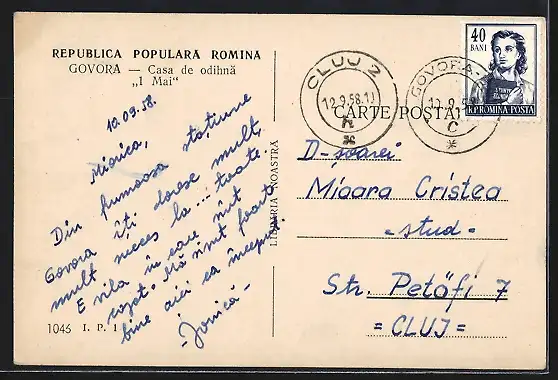 REPUBLICA POPULARA ROMINA
GOVORA — Casa de odihnă
„1 Mai"
10.09.58.
Miorica,
Din frumoasa stațiune
Govora îți doresc mult,
mult succes la ... toate.
E vila în care sînt
cazat. Mă simt foarte
bine aici ca început.
- Jonică -
1046 I. P. 1
LIBRĂRIA NOASTRĂ
CLUJ 2
12.9.58.
GOVORA
C
CARTE POSTALĂ
40
BANI
R.P.ROMINA POSTA
D-șoarei
Mioara Cristea
- stud -
Str. Petöfi 7
= CLUJ =